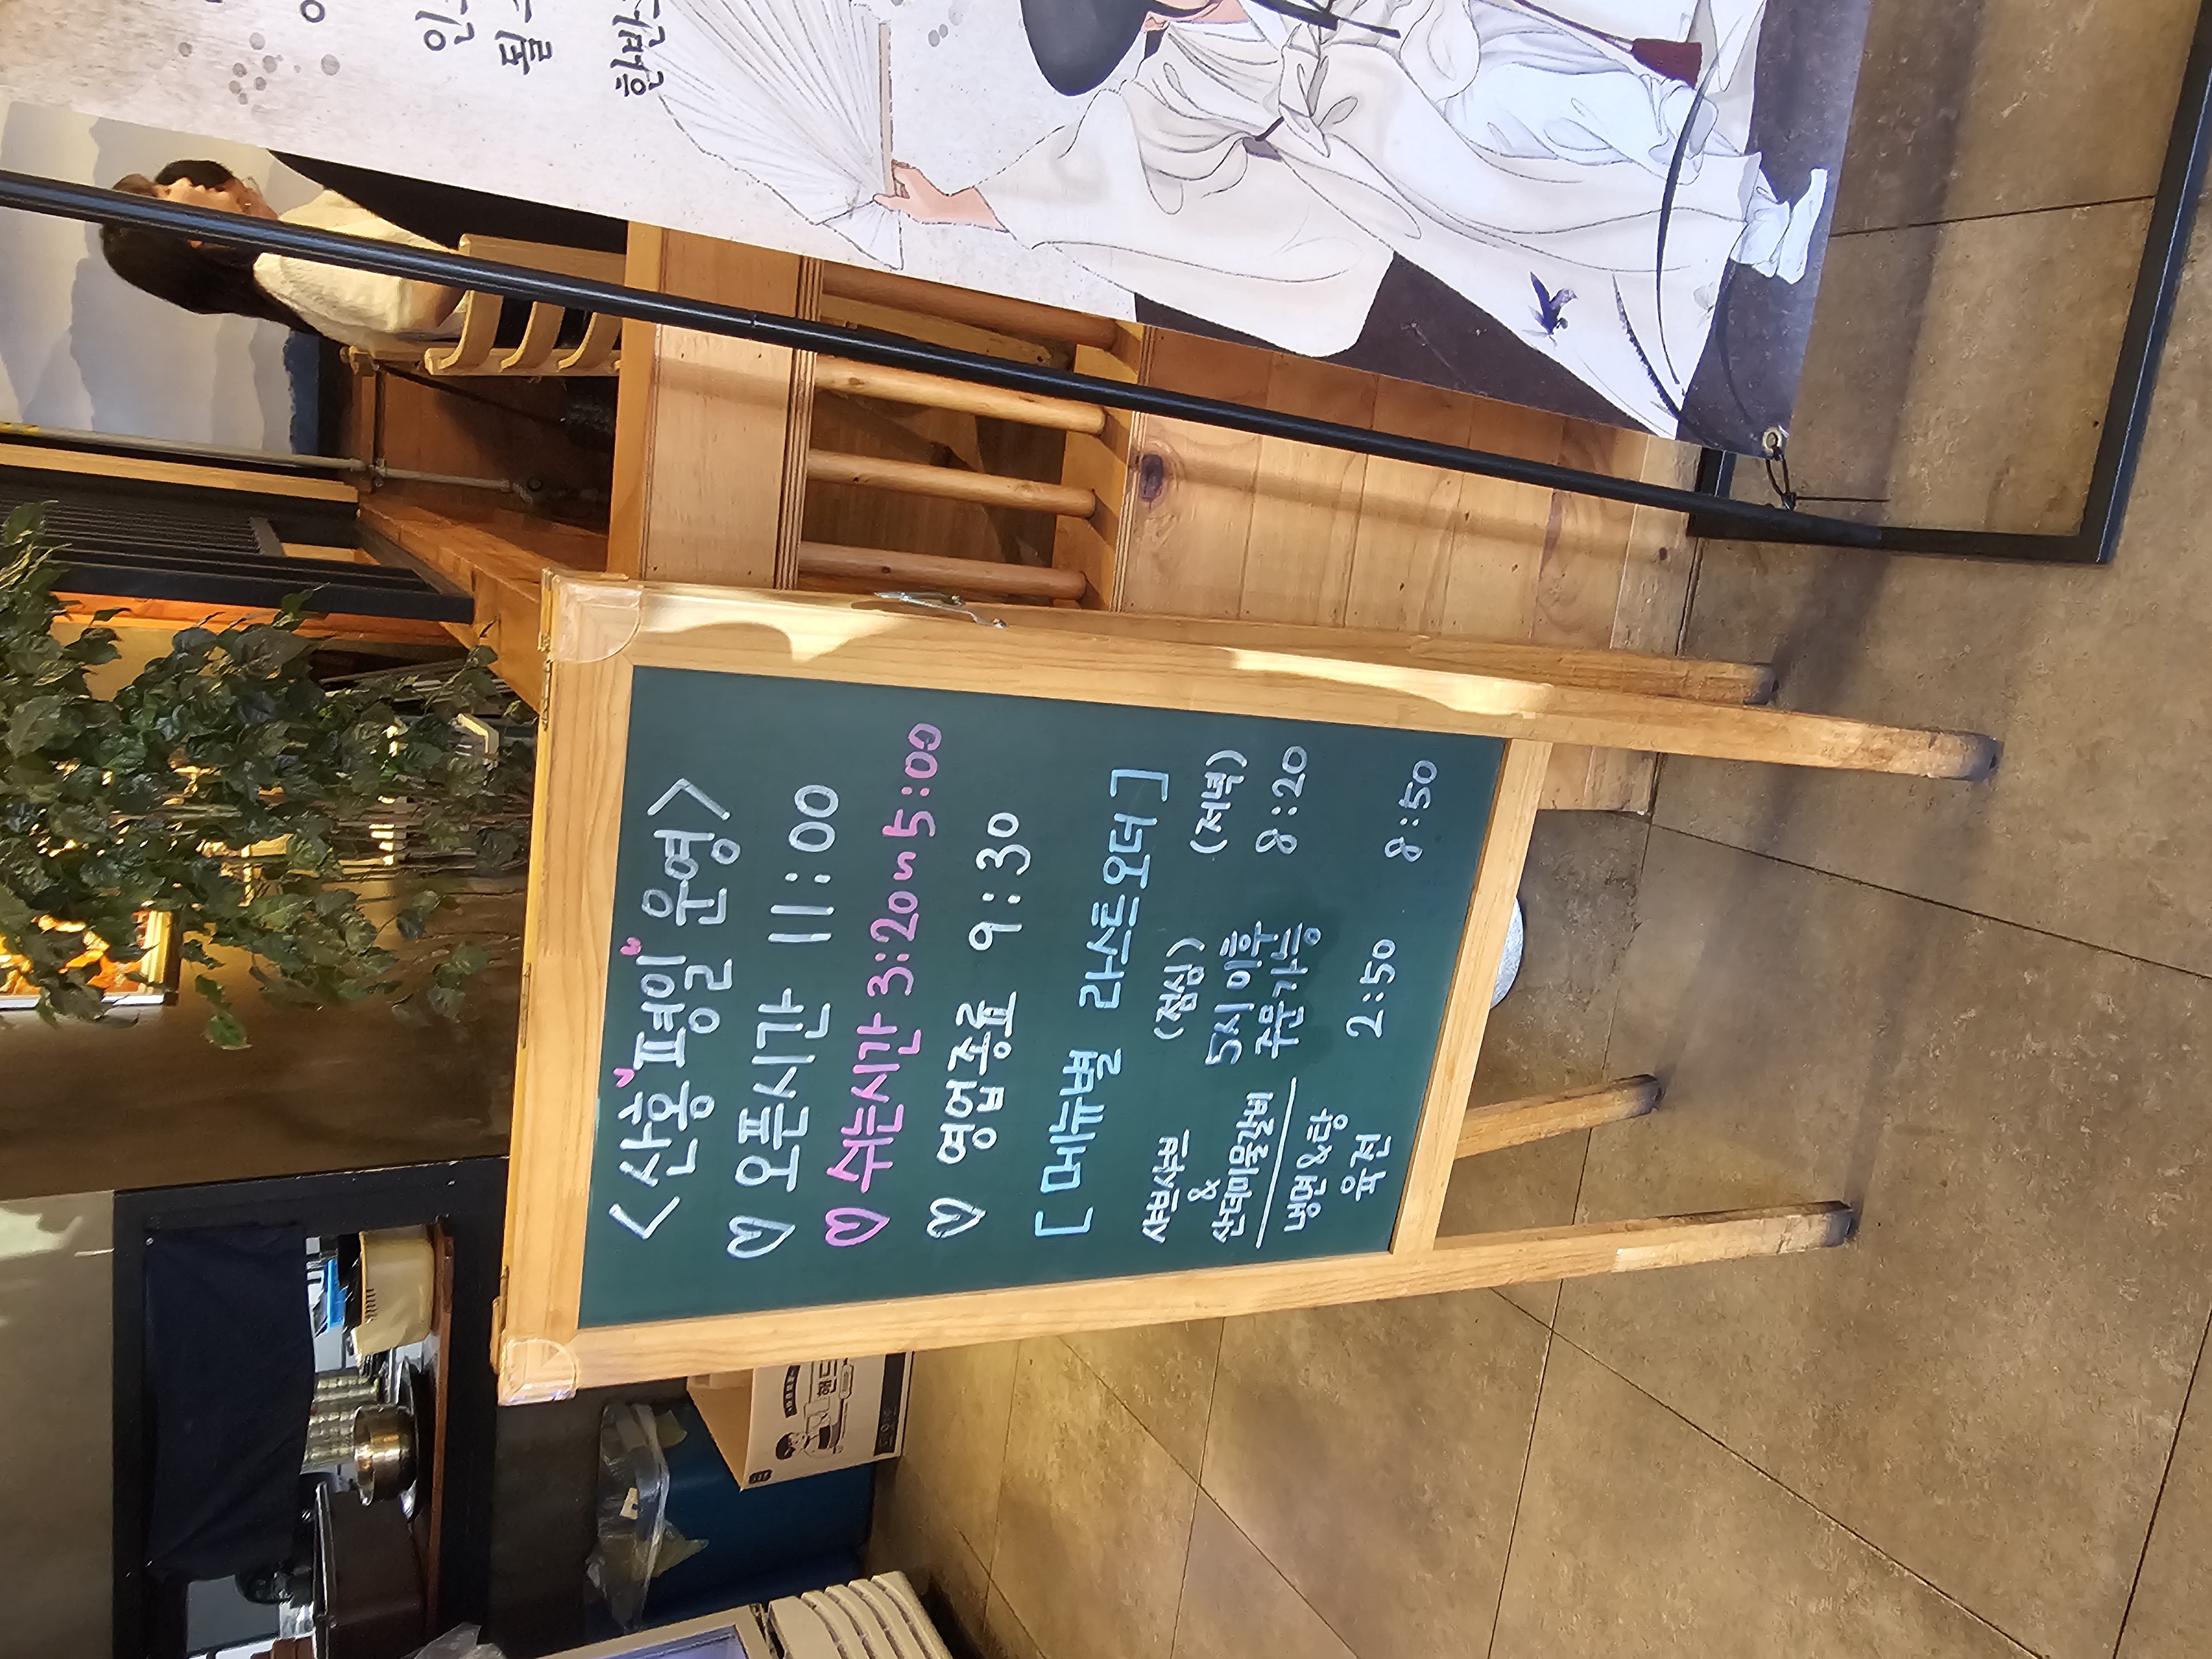 <산홍 "평일" 운영>
♡ 오픈시간 11:00
♡ 쉬는시간 3:20~5:00
♡ 영업종료 9:30
[메뉴별 라스트오더]
(점심) (저녁)
샤브샤브
&
산더미물갈비 5시 이후 주문가능 8:20
냉면&탕
육전 2:50 8:50